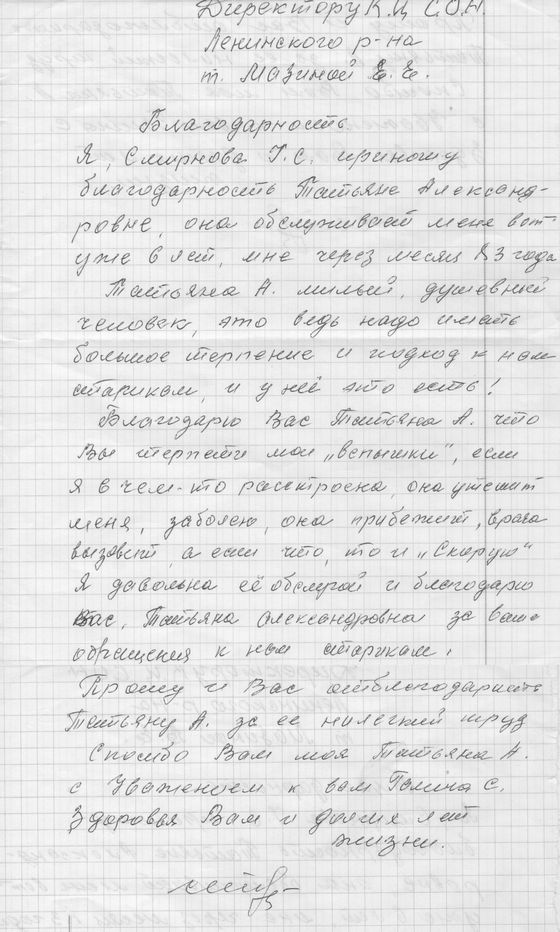 Директору К.Ц. С.О.Н.
Ленинского р-на
т. Мазиной Е. Е.
Благодарность
Я, Смирнова Г.С. приношу
благодарность Татьяне Александ-
ровне, она обслуживает меня вот
уже 8 лет, мне через месяц 83 года
Татьяна А. милый, душевный
человек, это ведь надо иметь
большое терпение и подход к нам
старикам, и у неё это есть!
Благодарю Вас Татьяна А. что
Вы терпети мои „вспышки", если
я в чем-то расстроена, она утешит
меня, заболею, она прибежит, врача
вызовет, а если что, то и „Скорую"
Я давольна её обслугой и благодарю
Вас, Татьяна Александровна за ваше
обращения к нам старикам.
Прошу и Вас отблагодарить
Татьяну А. за ее нилегкий труд
Спосибо Вам моя Татьяна А.
с Уважением к вам Галина С.
Здоровья Вам и долгих лет
жизни.